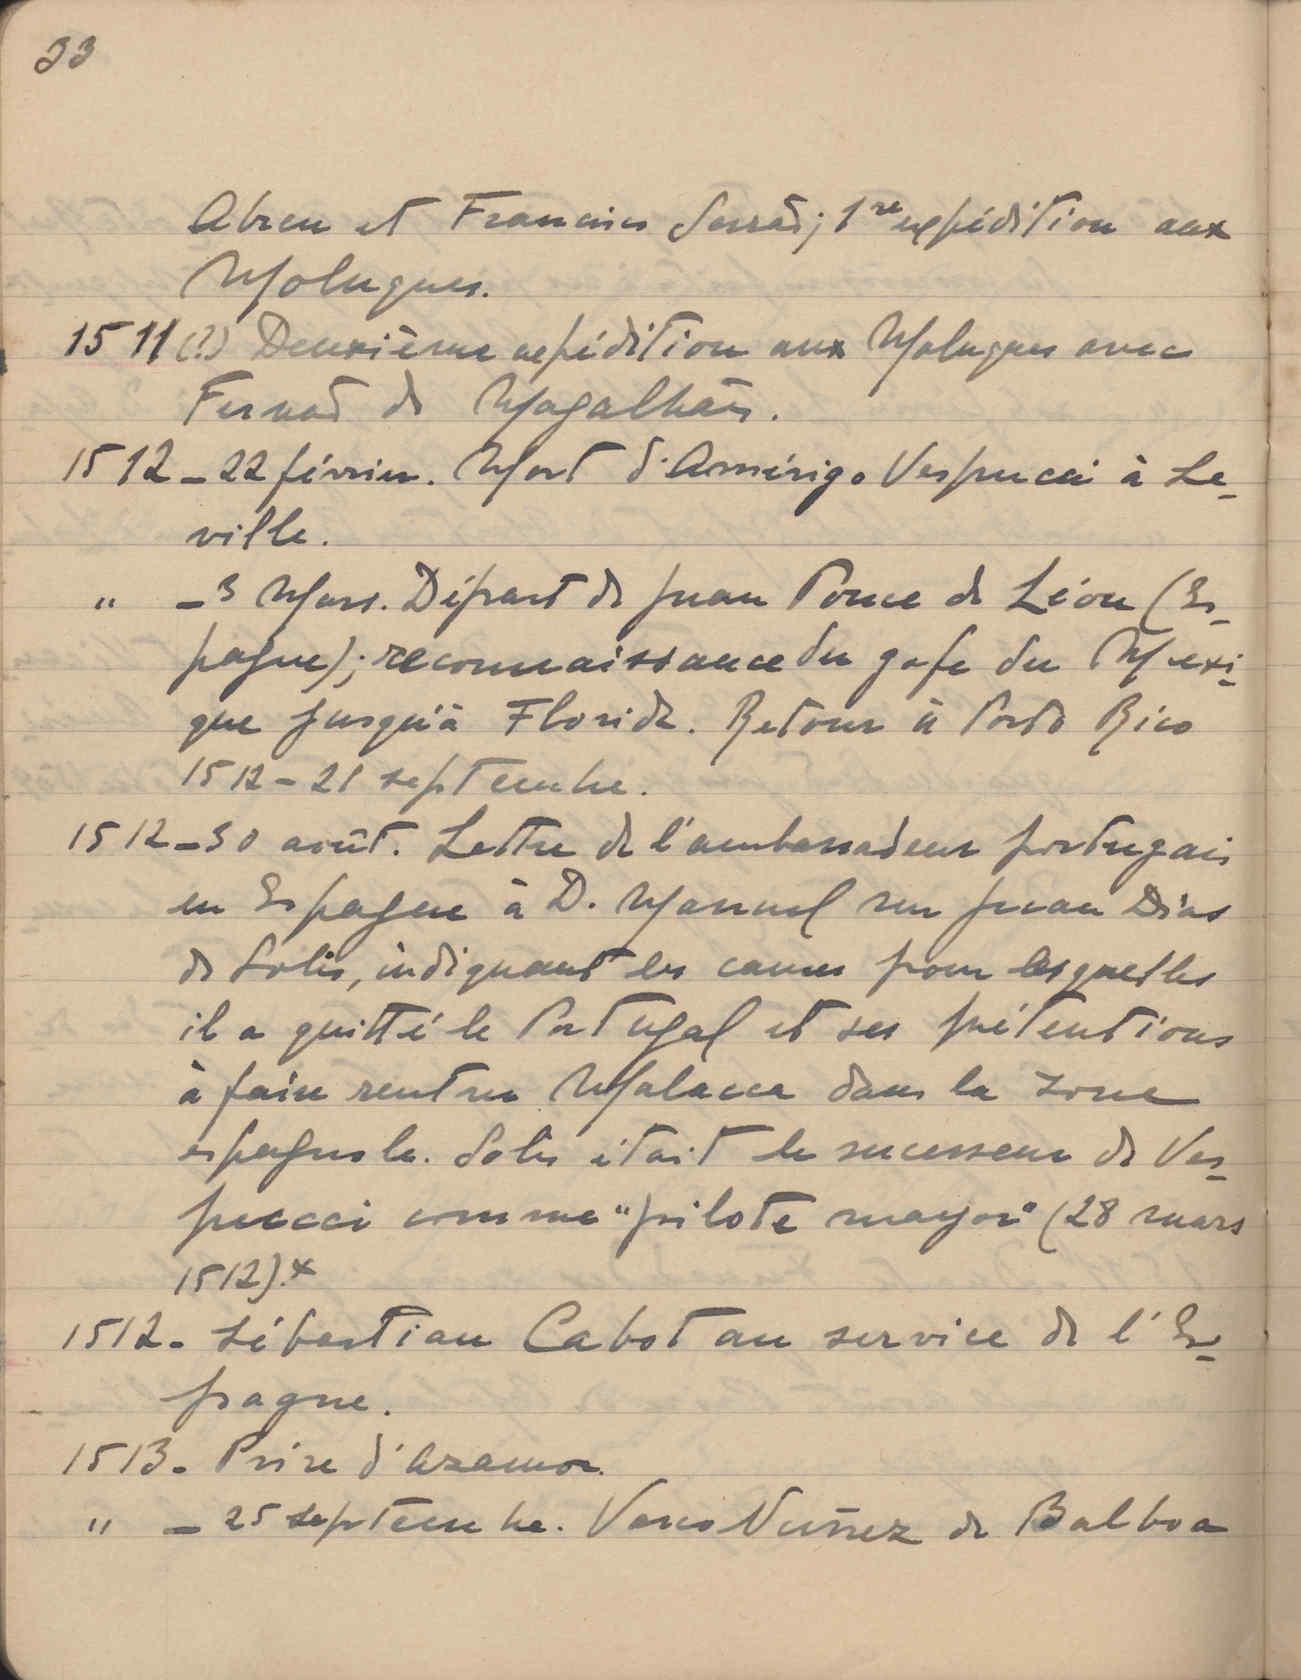 33
Abreu et Francisco Serrão; 1re expédition aux
Moluques.
1511 (?) Deuxième expédition aux Moluques avec
Fernão de Magalhães.
1512 - 22 février. Mort d'Amérigo Vespucci à Se-
ville.
" - 3 Mars. Départ de Juan Ponce de Léon (Es-
pagne); reconnaissance du golfe du Mexi-
que jusqu'à Floride. Retour à Porto Rico
1512 - 21 septembre.
1512 - 30 août. Lettre de l'ambassadeur portugais
en Espagne à D. Manuel sur Juan Dias
de Solis, indiquant les causes pour lesquelles
il a quitté le Portugal et ses prétentions
à faire rentrer Malacca dans la zone
espagnole. Solis était le sucesseur de Ves-
pucci comme "pilote mayor" (28 mars
1512).x
1512. Sébastian Cabot au service de l'Es-
pagne.
1513. Prise d'Azamor.
" - 25 septembre. Vasco Nuñez de Balboa